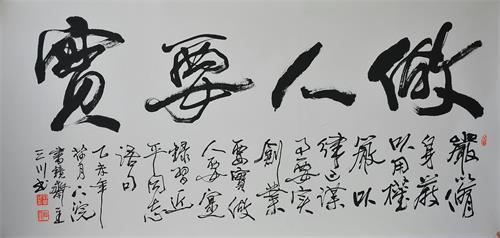 做人要實
嚴以脩
身嚴
以用權
嚴以
律己謀
事要實
創業
要實做
人要實
録習近
平同志
語句
乙未年
荷月八浣
書於齋主
三川書